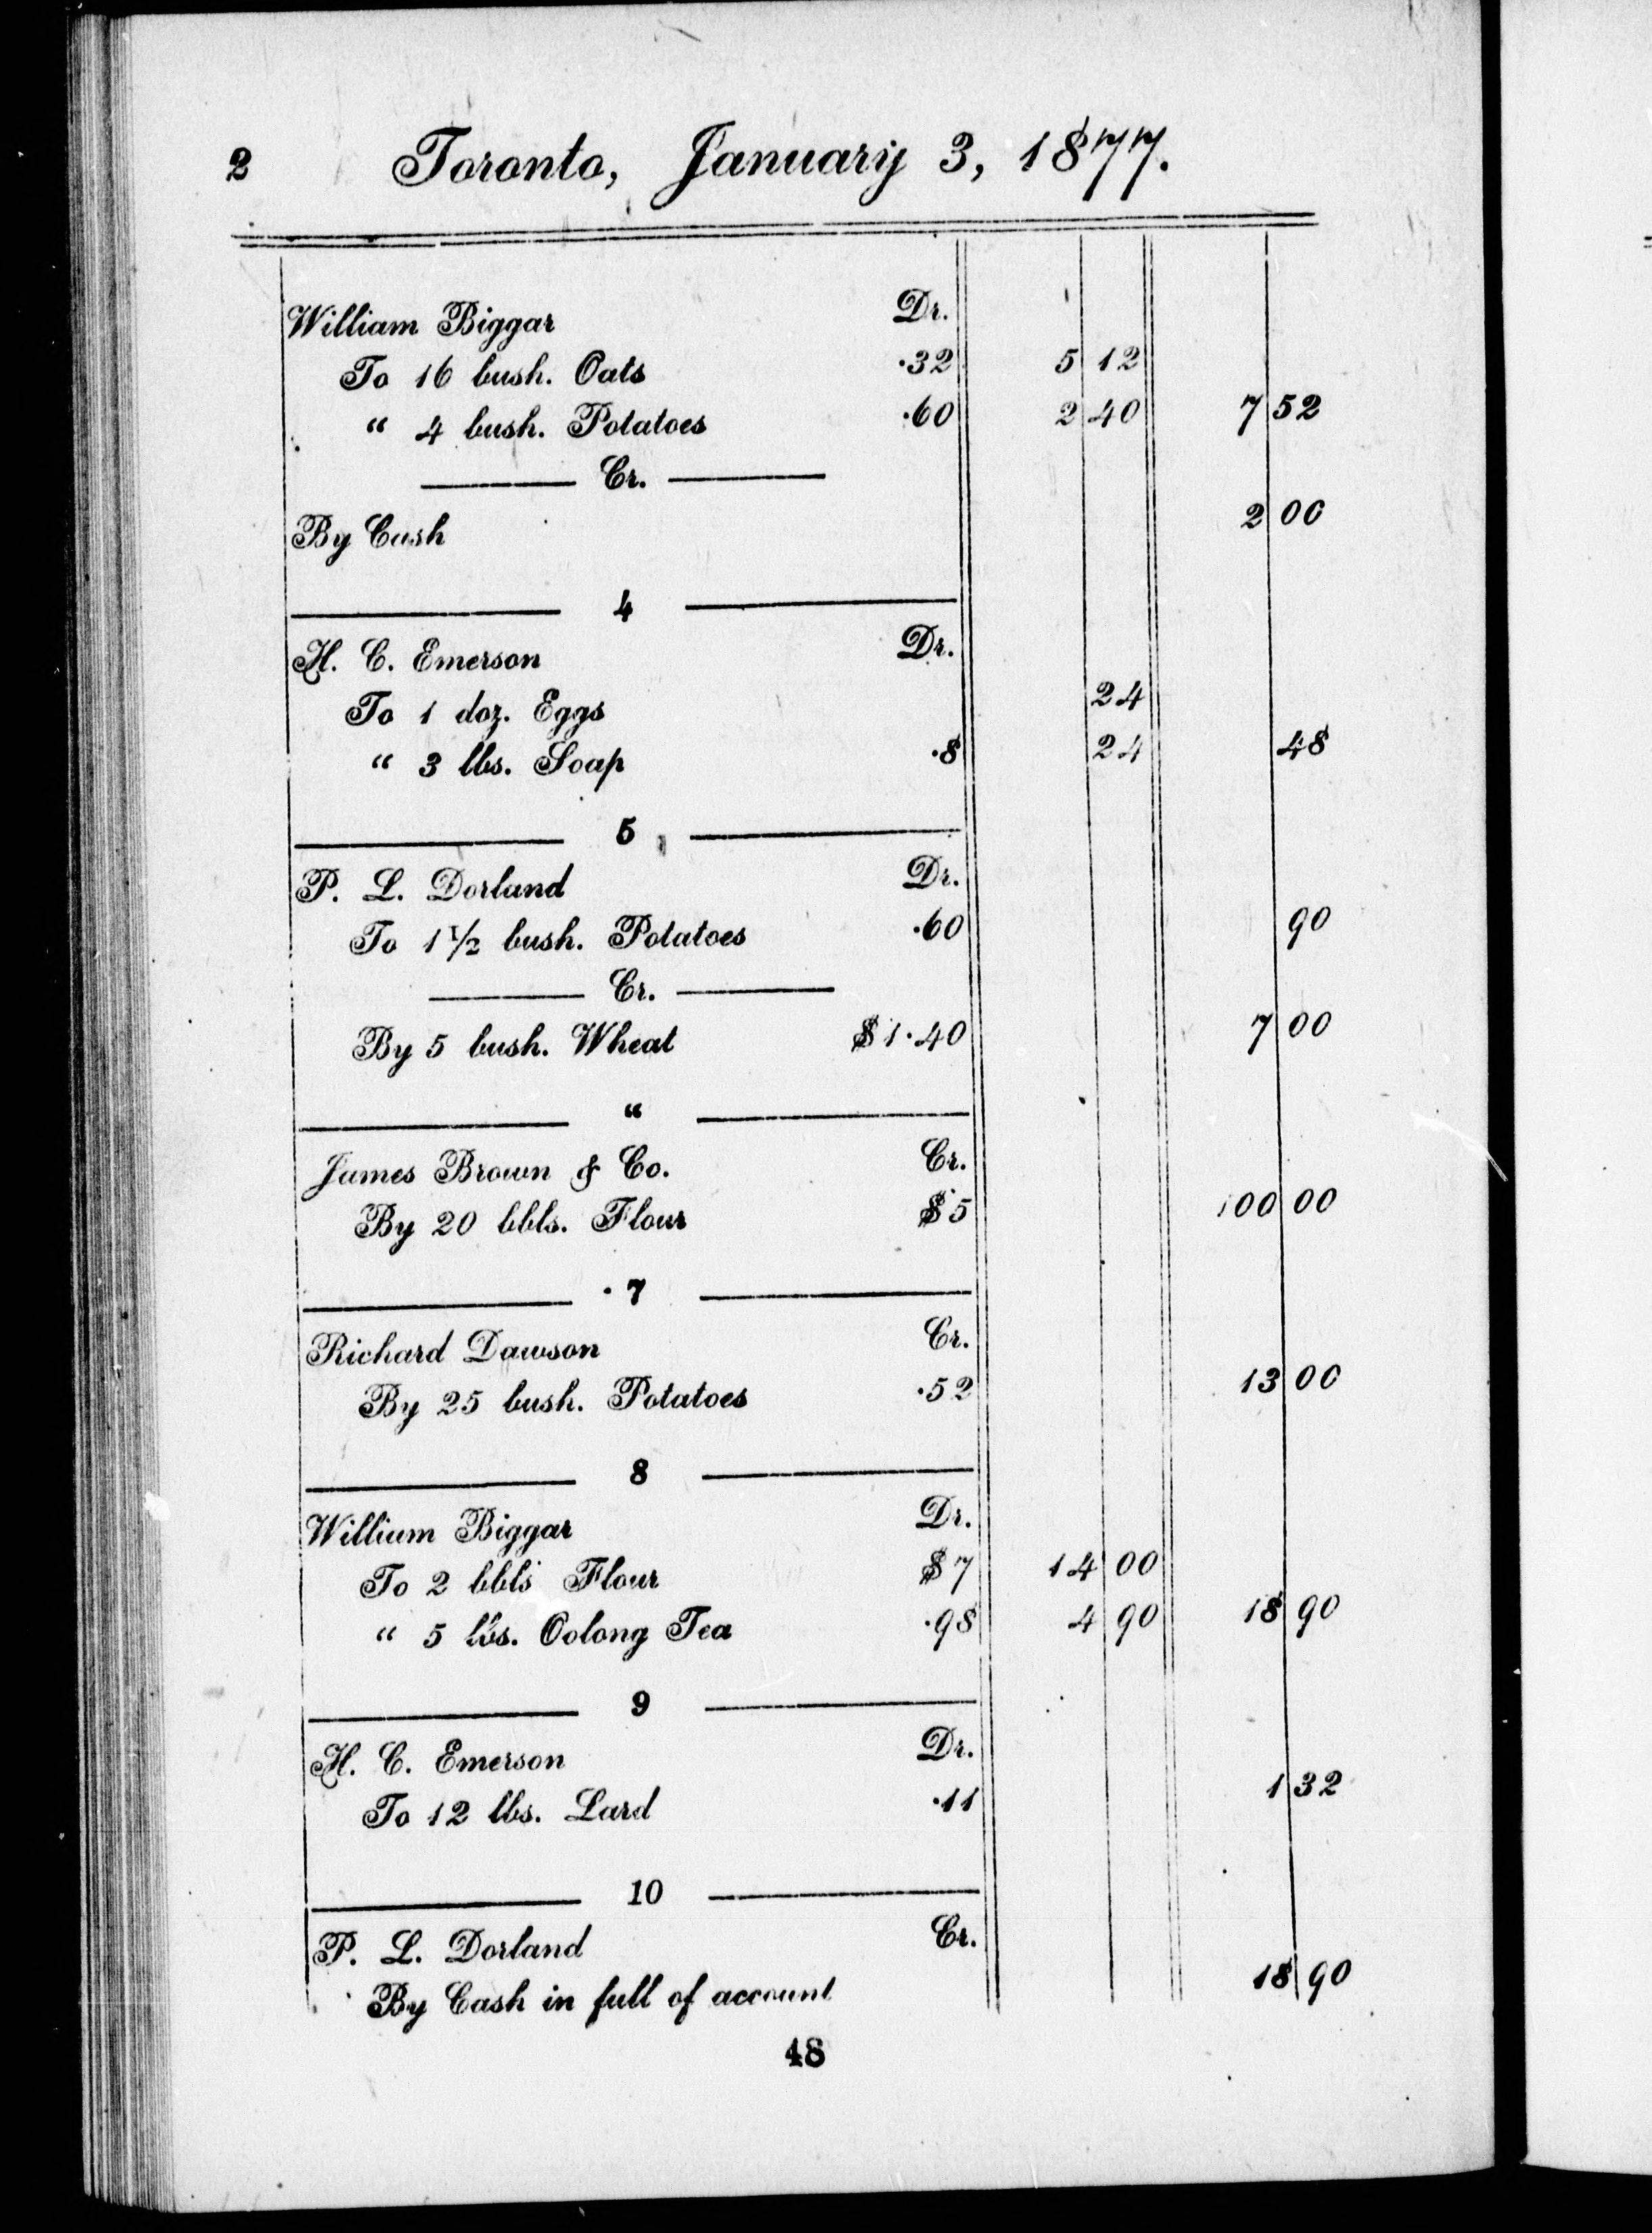 2 Toronto, January 3, 1877.
William Biggar Dr.
To 16 bush. Oats .32 5 12
“ 4 bush. Potatoes .60 2 40 7 52
Cr.
By Cash 2 00
4
H. C. Emerson Dr.
To 1 doz. Eggs 24
“ 3 lbs. Soap .8 24 48
5
P. L. Dorland Dr.
To 1 1/2 bush. Potatoes .60 90
Cr.
By 5 bush. Wheat $1.40 7 00
“
James Brown & Co. Cr.
By 20 bbls. Flour $5 100 00
7
Richard Dawson Cr.
By 25 bush. Potatoes .52 13 00
8
William Biggar Dr.
To 2 bbls Flour $7 14 00
“ 5 lbs. Oolong Tea .98 4 90 18 90
9
H. C. Emerson Dr.
To 12 lbs. Lard .11 1 32
10
P. L. Dorland Cr.
By Cash in full of account 18 90
48